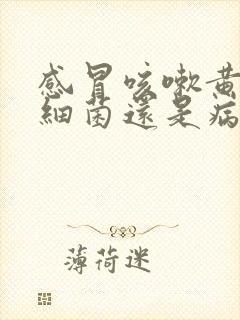 感冒咳嗽黄
細菌還是病
薄荷迷